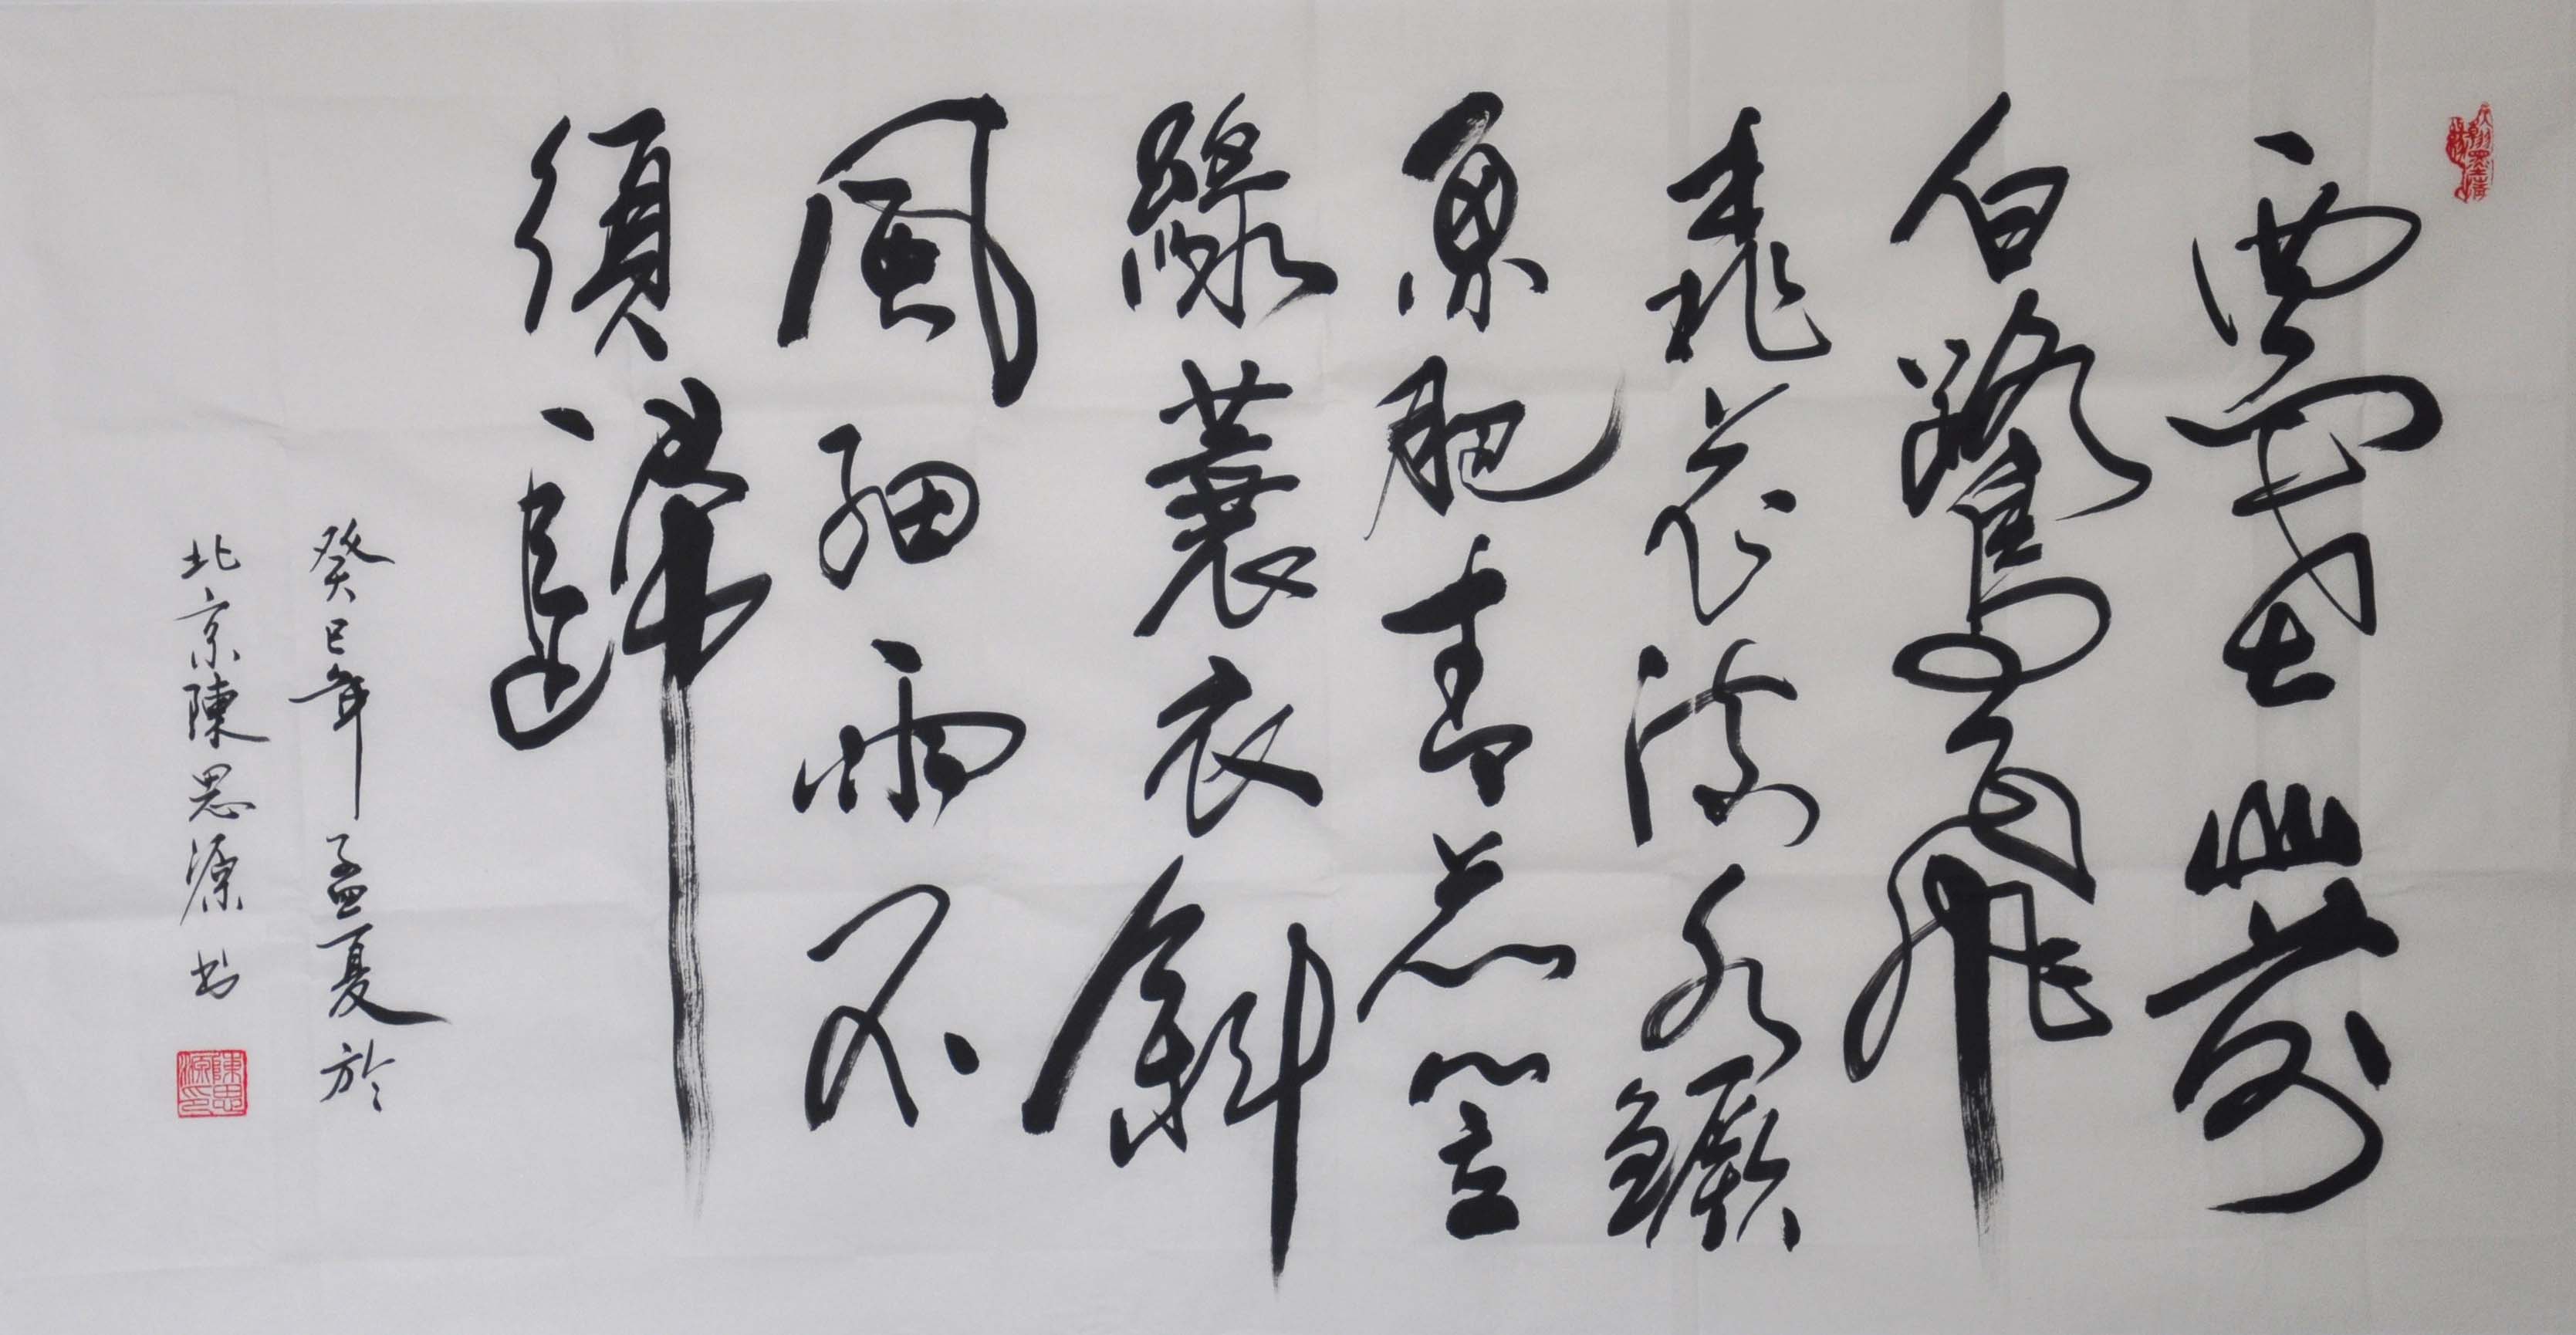 西塞山前
白鷺飛
桃花流水鱖
魚肥青箬笠
綠蓑衣斜
風細雨不
須歸
癸巳年孟夏於
北京陳思源书
陳思源印